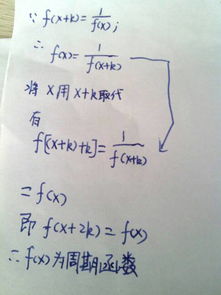 ∵ f(x+k)=1/f(x);
∴ f(x)=1/f(x+k)
将 x 用 x+k 取代
有
f[(x+k)+k]=1/f(x+k)
=f(x)
即 f(x+2k)=f(x)
∴ f(x)为周期函数